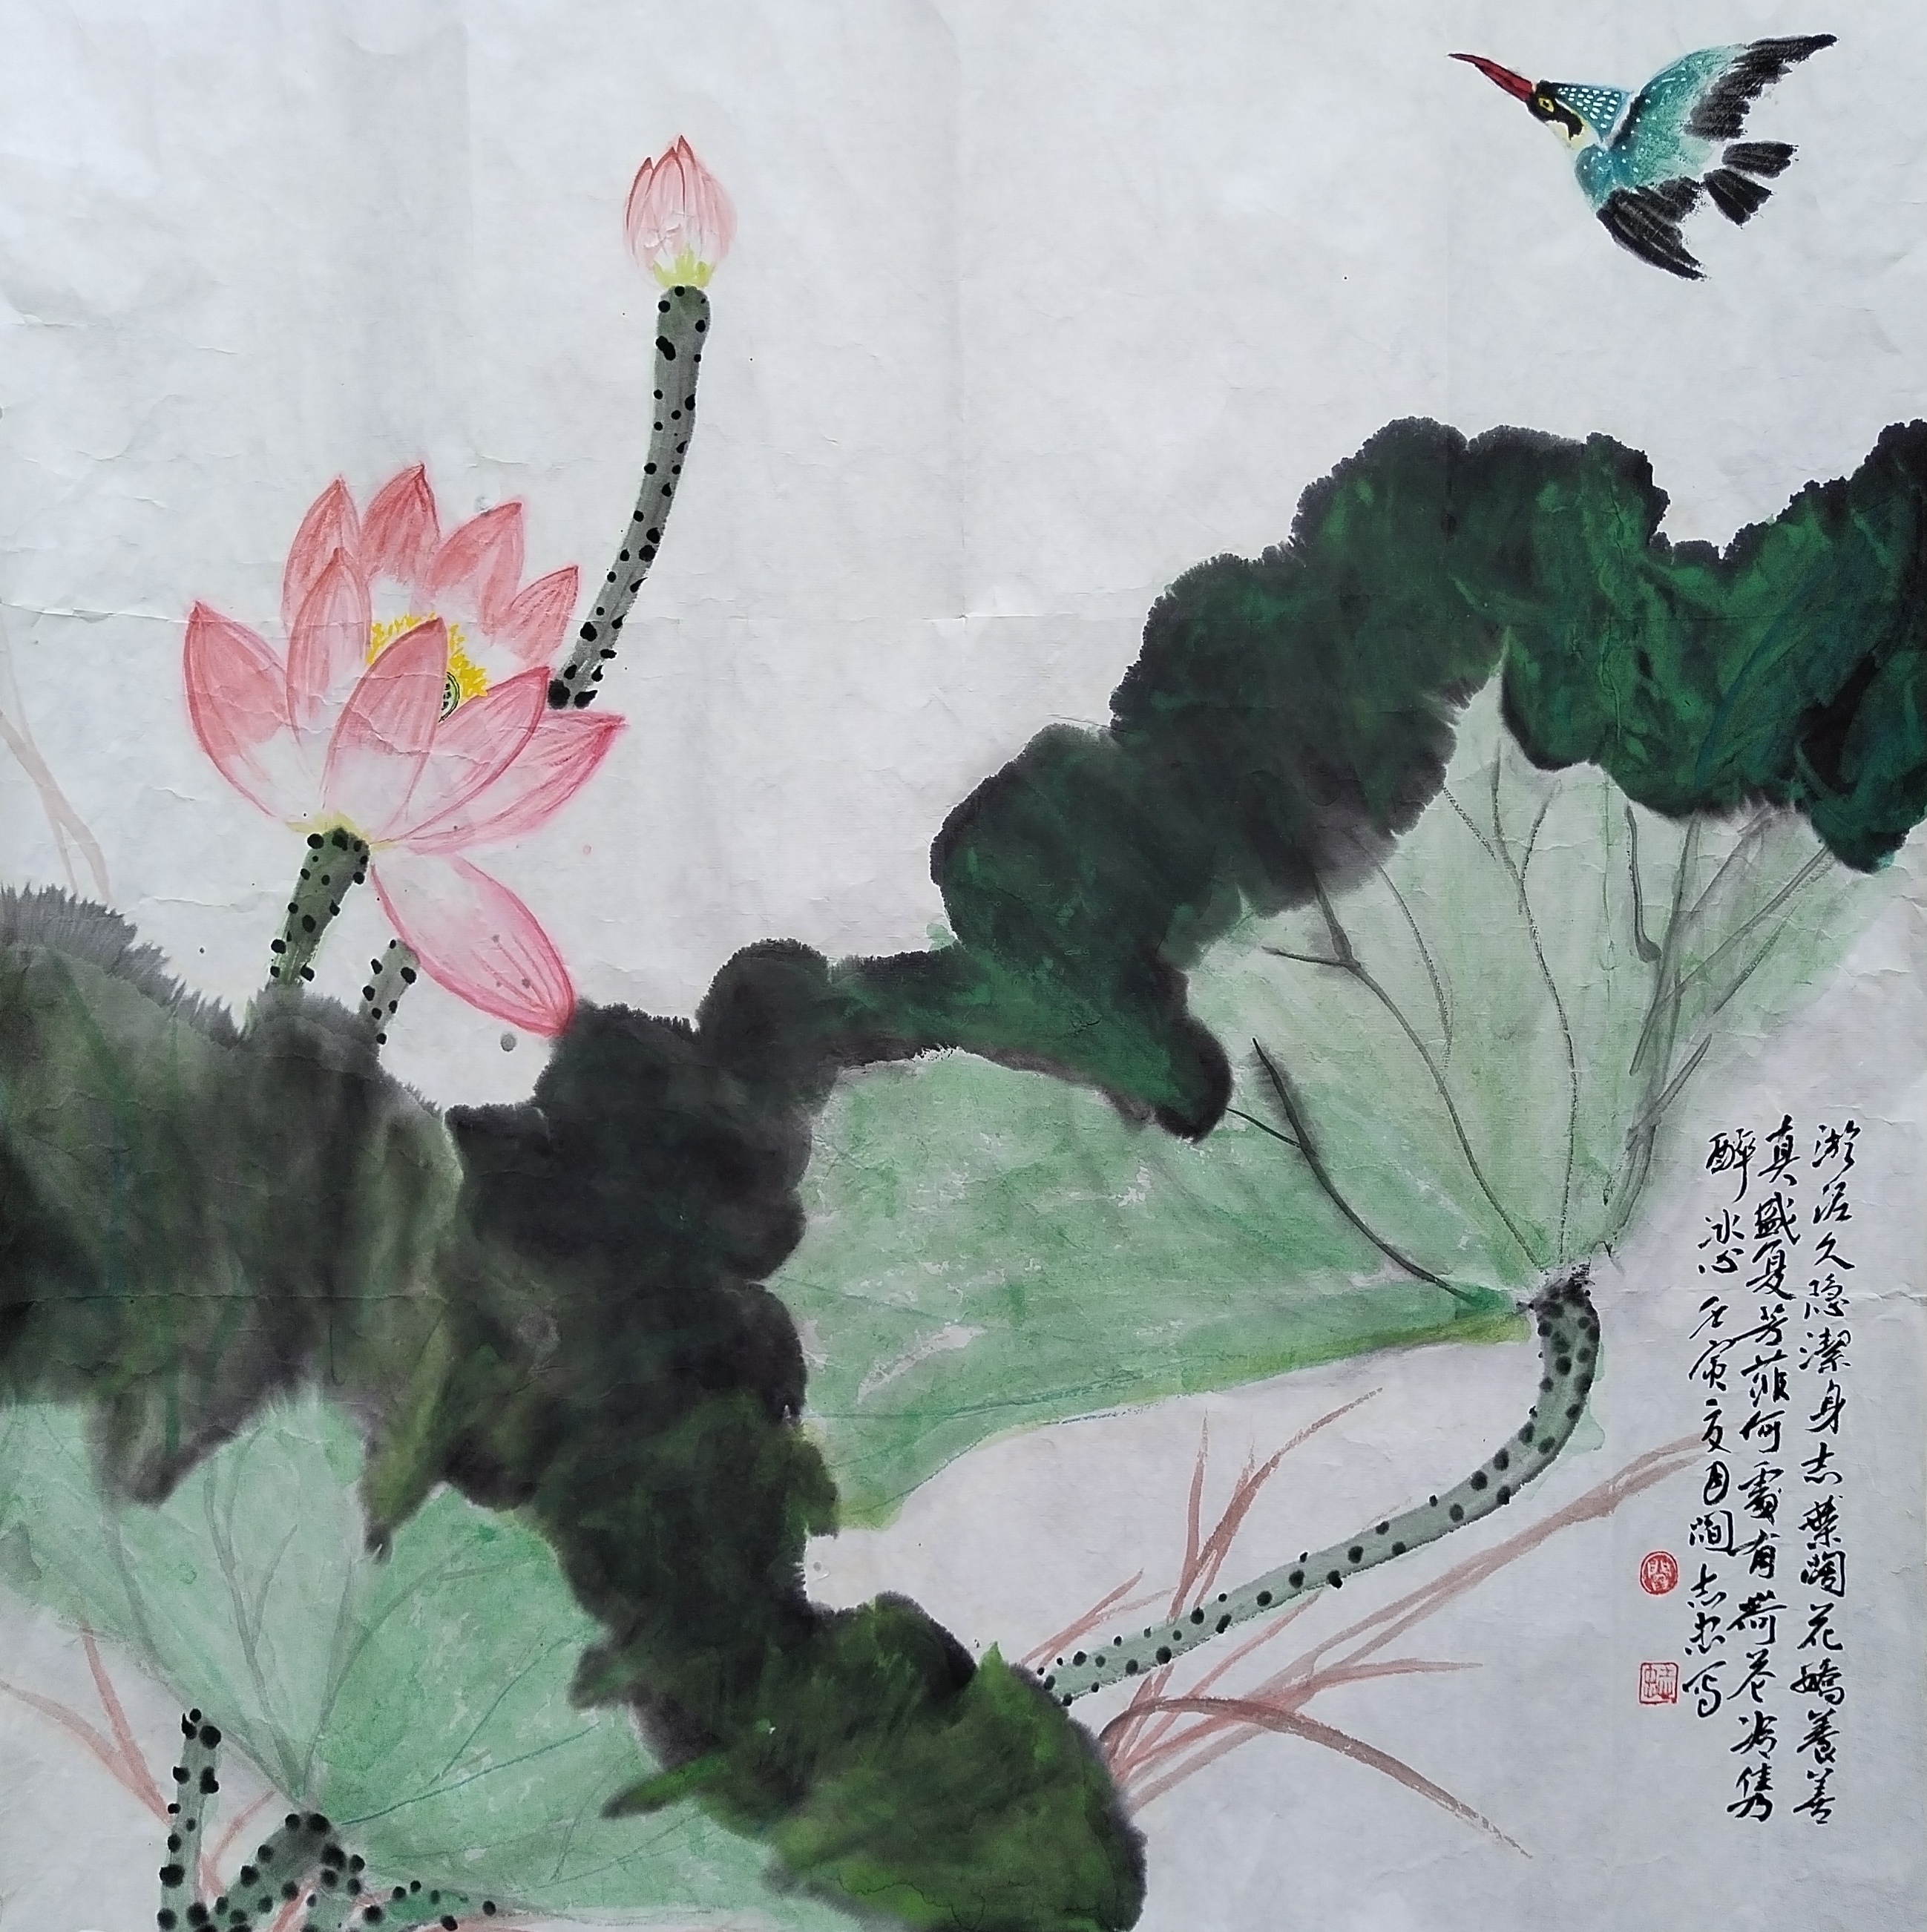 淤泥久隐潔身志葉阔花嬌養善
真盛夏芳菲何處有荷花冷隽
醉冰心壬寅夏月阎志忠写